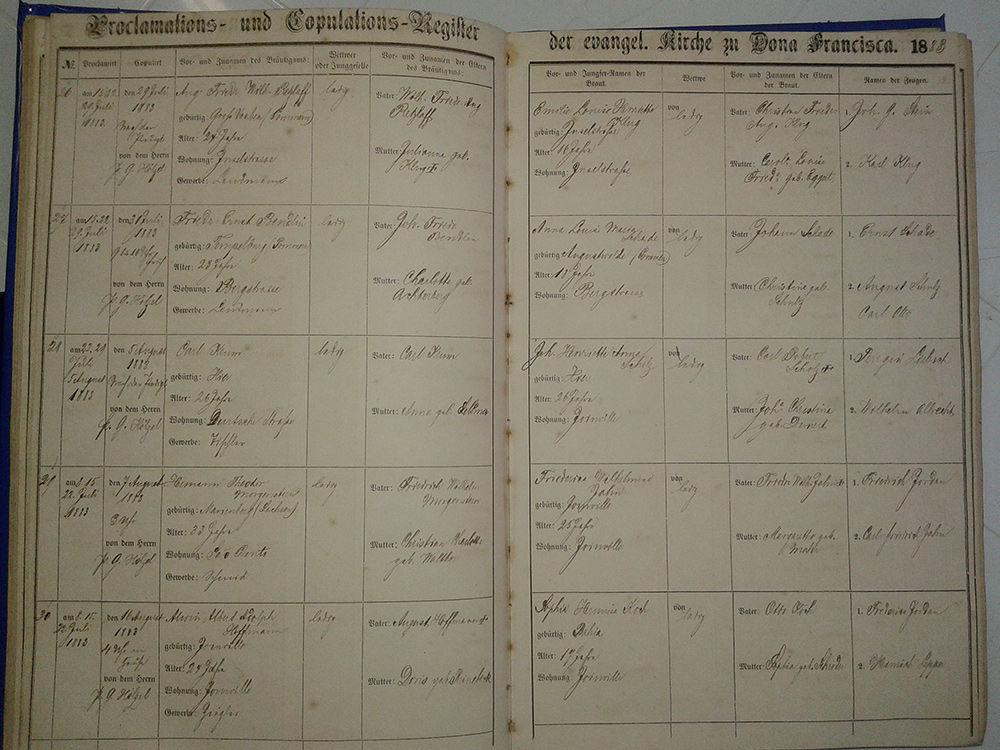 Proclamations- und Copulations-Register
der evangel. Kirche zu Dona Francisca. 1883
№ Proclamirt Copulirt Vor- und Zunamen des Bräutigams: Wittwer oder Junggeselle Vor- und Zunamen der Eltern des Bräutigams:
Vor- und Jungfer-Namen der Braut. Wittwe Vor- und Zunamen der Eltern der Braut. Namen der Zeugen.
26 am 15. 22. 29. Juli 1883.
den 29 Juli 1883
von dem Herrn
P. G. Hölzel
Aug. Friedr. Wilh. Retzlaff
gebürtig:
Alter: 24 Jahr
Wohnung: Inselstrasse
Gewerbe: Landmann
ledig
Vater: Wilh. Friedr. Aug. Retzlaff
Mutter: Julianna geb. Klug
Emilie Louise Henriette Klug
gebürtig: Inselstraße
Alter: 16 Jahr
Wohnung: Inselstraße
von
ledig
Vater: Christian Friedr. Aug. Klug
Mutter: Carol. Louise Fried. geb. Eggert
1. Joh. G. Stein
2. Karl Klug
27 am 15. 22. 29. Juli 1883
den 31 Juli 1883
von dem Herrn
P. G. Hölzel
Friedr. Ernst Bendlin
gebürtig: Tempelburg Pommern
Alter: 23 Jahr
Wohnung: Bergstrasse
Gewerbe: Landmann
ledig
Vater: Joh. Friedr. Bendlin
Mutter: Charlotte geb. Achterberg
Anna Louise Maria Schade
gebürtig: Augustwalde (Pommern)
Alter: 18 Jahr
Wohnung: Bergstrasse
von
ledig
Vater: Johann Schade
Mutter: Christine geb. Schulz
1. Ernst Schade
2. August Schulz
Carl Otto
28 am 22. 29 Juli 5 August 1883
den 5 August 1883
Nach der Predigt
von dem Herrn
P. G. Hölzel
Carl Klum
gebürtig: Hier
Alter: 26 Jahr
Wohnung: Deutsche Straße
Gewerbe: Tischler
ledig
Vater: Carl Klum
Mutter: Anna geb.
Joh. Henriette Anna Scholz
gebürtig: Hier
Alter: 26 Jahr
Wohnung: Joinville
von
ledig
Vater: Carl Robert Scholz †
Mutter: Joh. Christina geb.
1.
2. Wilhelm Albrecht
29 am 8. 15 22. Juli 1883
den 7 August 1883
5 Uhr
von dem Herrn
P. G. Hölzel
Hermann Theodor Morgenstern
gebürtig: Marienberg (Sachsen)
Alter: 33 Jahr
Wohnung: Sao Bento
Gewerbe: Schmied
ledig
Vater: Friedrich Wilhelm Morgenstern
Mutter: Christian Karlotte geb.
Friederine Wilhelmine Jahn
gebürtig: Joinville
Alter: 25 Jahr
Wohnung: Joinville
von
ledig
Vater: Friedr. Wilh. Jahn †
Mutter: Margaretha geb.
1. Friedrich Jordan
2. Carl Friedrich Jahn
30 am 8. 15. 22. Juli 1883
den 16 August 1883
4 Uhr im Hause
von dem Herrn
P. G. Hölzel
Alwin Albert Adolph Hoffmann
gebürtig: Joinville
Alter: 24 Jahr
Wohnung: Joinville
Gewerbe: Ziegler
ledig
Vater: August Hoffmann †
Mutter: Doris geb.
Sophie Hermine Koch
gebürtig: Bahia
Alter: 17 Jahr
Wohnung: Joinville
von
ledig
Vater: Otto
Mutter: Sophia geb. Schröder
1. Frederico Jordan
2. Heinrich Lepper